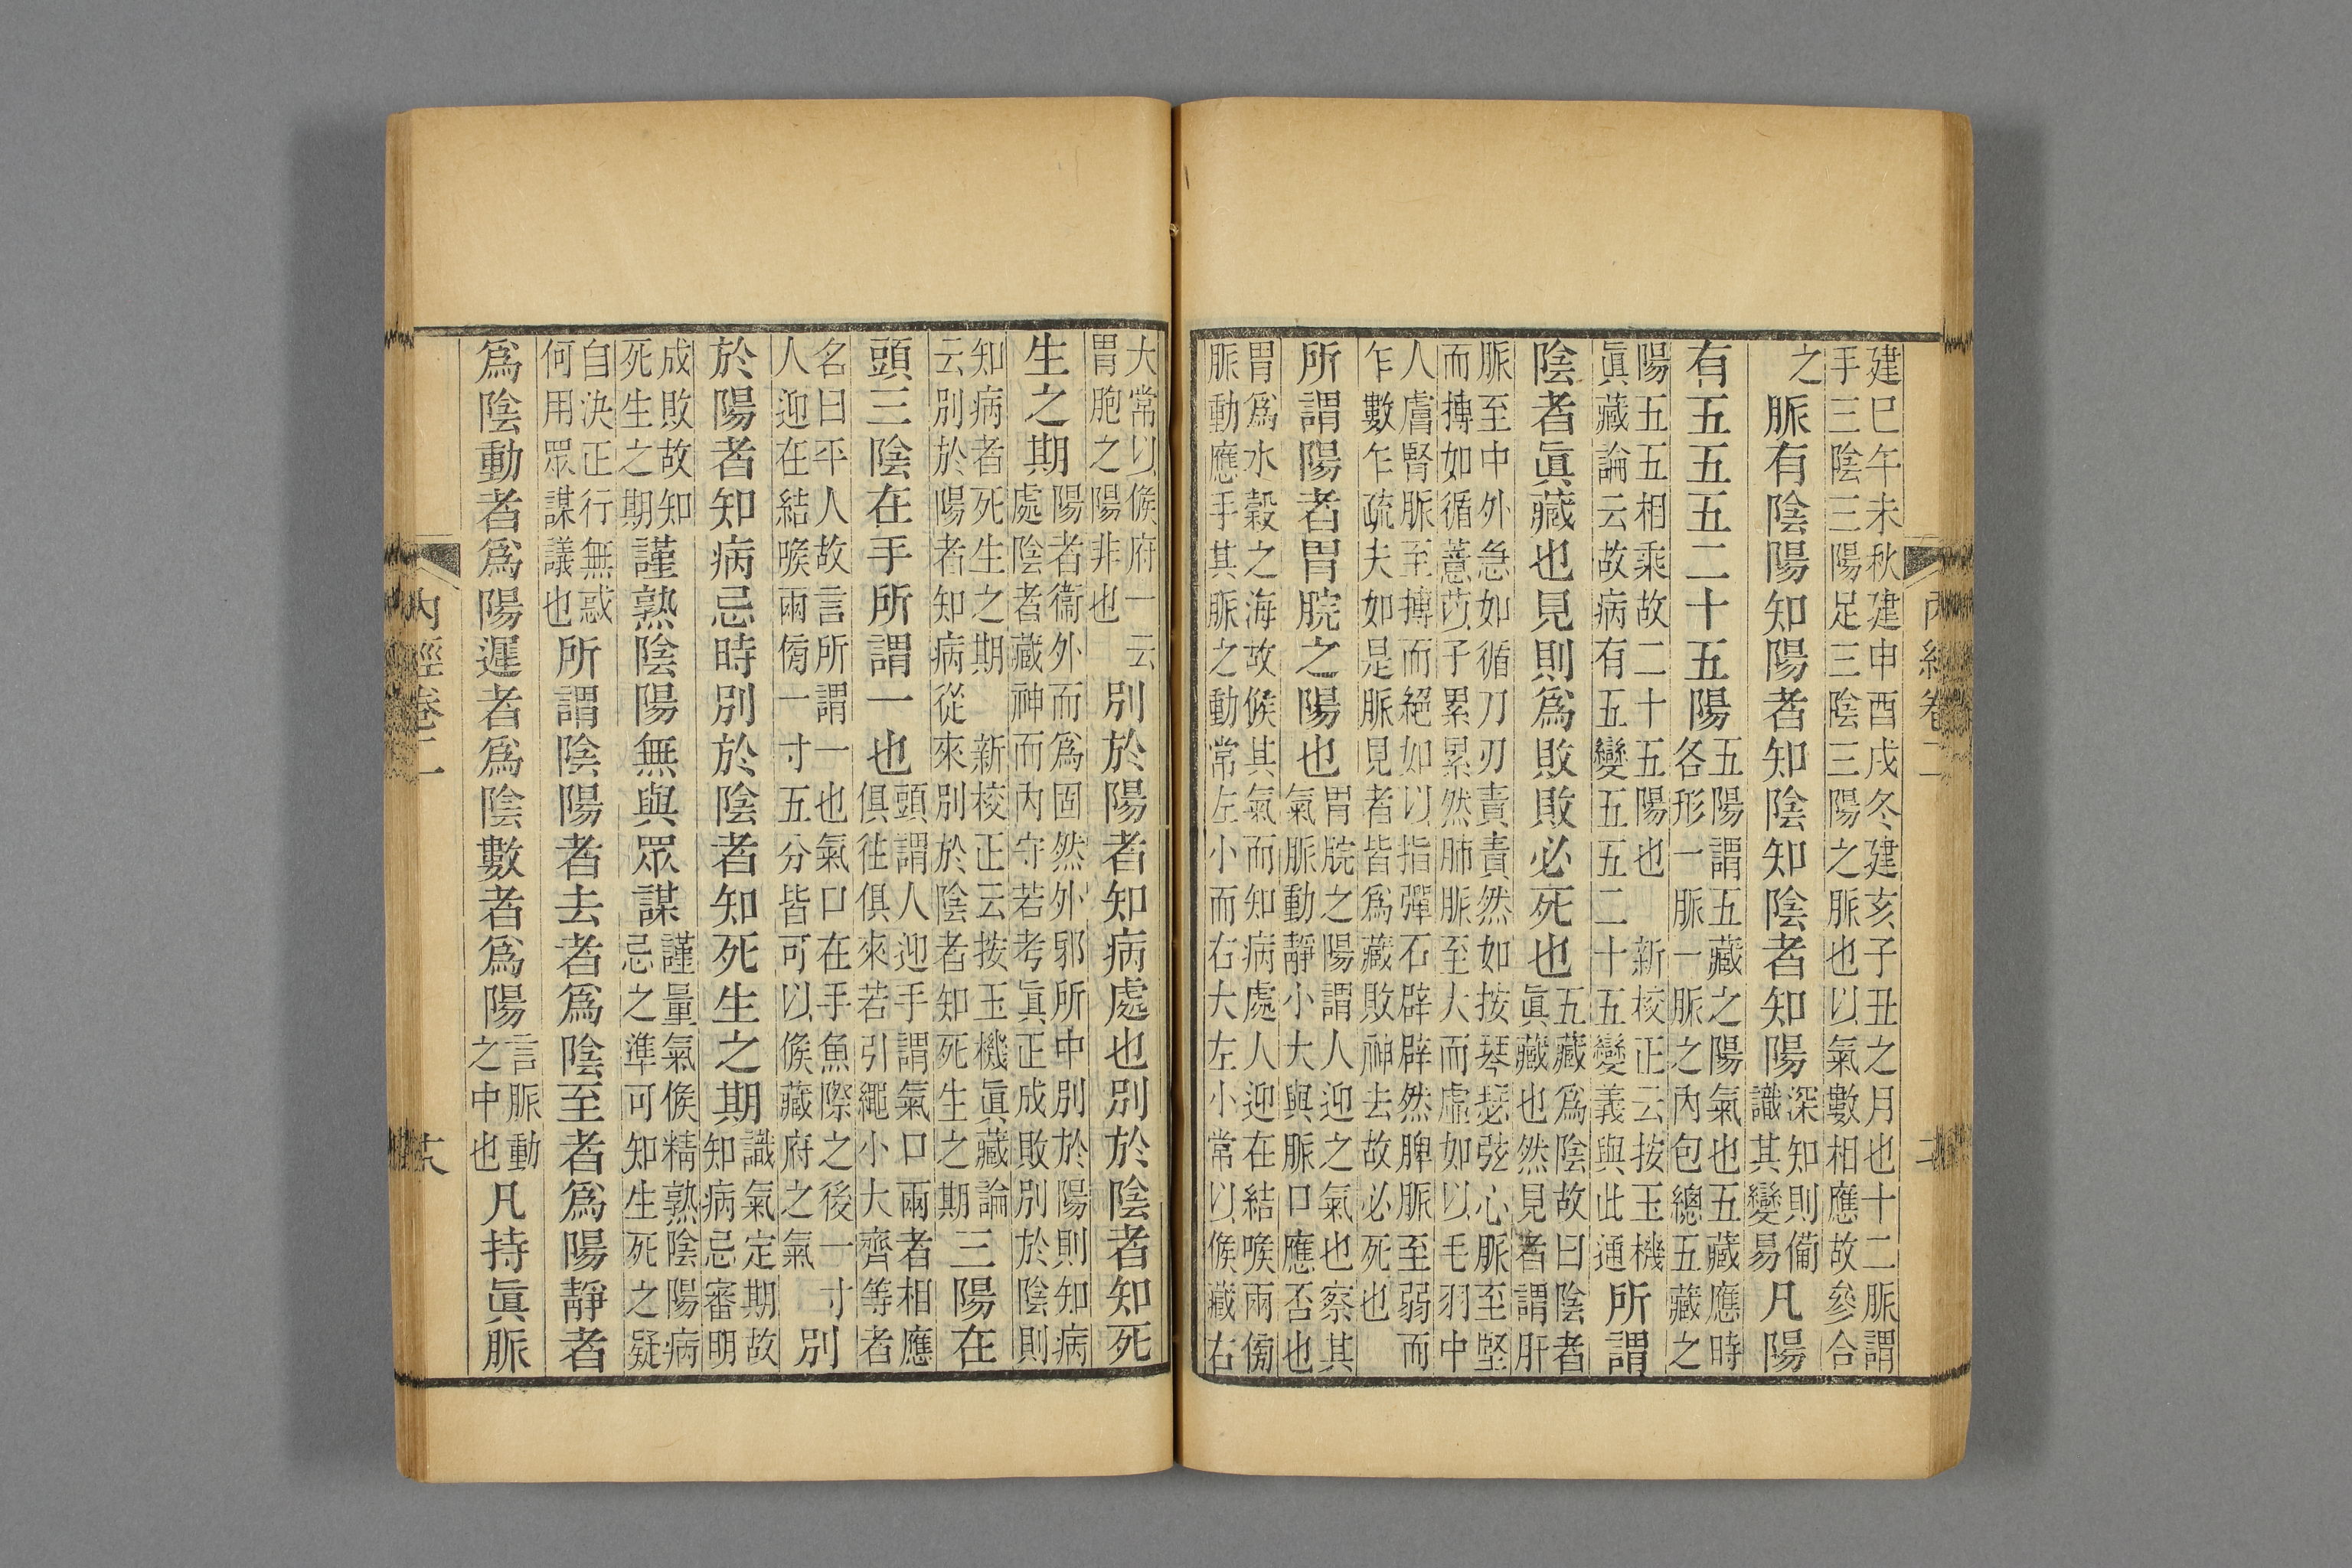 建巳午未秋建申酉戌冬建亥子丑之月也十二脈謂
手三陰三陽足三陰三陽之脈也以氣數相應故參合
之脈有陰陽知陽者知陰知陰者知陽深知則備識其變易凡陽
有五五五二十五陽五陽謂五藏之陽氣也五藏應時各形一脈一脈之內包總五藏之
陽五五相乘故二十五陽也 新校正云按玉機眞藏論云故病有五變五五二十五變義與此通所謂
陰者眞藏也見則爲敗敗必死也五藏爲陰故曰陰者眞藏也然見者謂肝
脈至中外急如循刀刃責責然如按琴瑟弦心脈至堅
而摶如循薏苡子累累然肺脈至大而虛如以毛羽中
人膚腎脈至摶而絕如以指彈石辟辟然脾脈至弱而
乍數乍疏夫如是脈見者皆爲藏敗神去故必死也
所謂陽者胃脘之陽也胃脘之陽謂人迎之氣也察其氣脈動靜小大與脈口應否也
胃爲水穀之海故候其氣而知病處人迎在結喉兩傍
脈動應手其脈之動常左小而右大左小常以候藏右
大常以候府一云胃胞之陽非也別於陽者知病處也別於陰者知死
生之期陽者衞外而爲固然外邪所中別於陽則知病處陰者藏神而內守若考眞正成敗別於陰則
知病者死生之期 新校正云按玉機眞藏論云別於陽者知病從來別於陰者知死生之期三陽在
頭三陰在手所謂一也頭謂人迎手謂氣口兩者相應俱往俱來若引繩小大齊等者
名曰平人故言所謂一也氣口在手魚際之後一寸人迎在結喉兩傍一寸五分皆可以候藏府之氣別
於陽者知病忌時別於陰者知死生之期識氣定期故知病忌審明
成敗故知死生之期謹熟陰陽無與眾謀謹量氣候精熟陰陽病忌之準可知生死之疑
自決正行無惑何用眾謀議也所謂陰陽者去者爲陰至者爲陽靜者
爲陰動者爲陽遲者爲陰數者爲陽言脈動之中也凡持眞脈
內經卷二